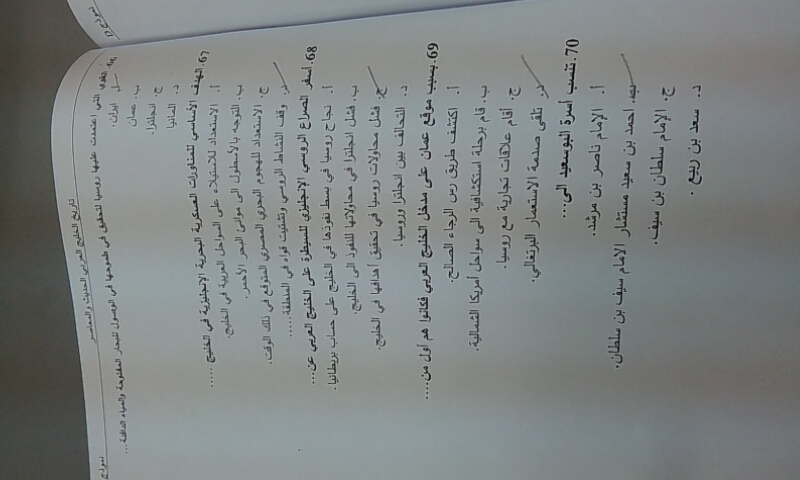 نموذج
تاريخ الخليج العربي الحديث والمعاصر
القوى التي اعتمدت عليها روسيا لتحقيق طموحها في الوصول للبحار المفتوحة والمياه الدافئة...
أ. ايران.
ب. عمان
ج. انجلترا.
د. المانيا
67. الهدف الأساسي للمناورات العسكرية البحرية الإنجليزية في الخليج .....
أ. الاستعداد للاستيلاء على السواحل العربية في الخليج.
ب. التوجه بالأسطول الى موانئ البحر الأحمر.
ج. الاستعداد للهجوم البحري المصري المتوقع في ذلك الوقت.
د. وقف النشاط الروسي وتشتيت قواه في المنطقة.....
68. أسفر الصراع الروسي الإنجليزي للسيطرة على الخليج العربي عن...
أ. نجاح روسيا في بسط نفوذها في الخليج على حساب بريطانيا.
ب. فشل انجلترا في محاولاتها للنفوذ الى الخليج.
ج. فشل محاولات روسيا في تحقيق اهدافها في الخليج.
د. التحالف بين انجلترا وروسيا.
69. بسبب موقع عمان على مدخل الخليج العربي فكانوا هم أول من....
أ. اكتشف طريق رس الرجاء الصالح.
ب. قام برحلة استكشافية الى سواحل أمريكا الشمالية.
ج. أقام علاقات تجارية مع روسيا.
د. تلقى صدمة الاستعمار البرتغالي.
70. تنسب أسرة البوسعيد الى...
أ. الإمام ناصر بن مرشد.
ب. احمد بن سعيد مستشار الامام سيف بن سلطان.
ج. الإمام سلطان بن سيف.
د. سعد بن ربيع .